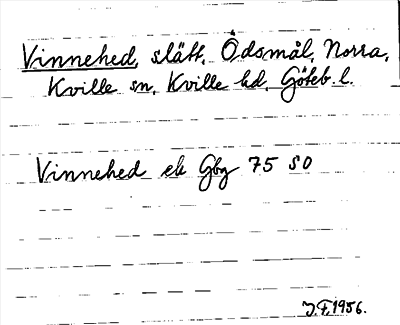 Vinnehed, slätt, Ödsmål, Norra,
Kville sn, Kville hd, Göteb. l.
Vinnehed ek Gbg 75 SO
J.F. 1956.